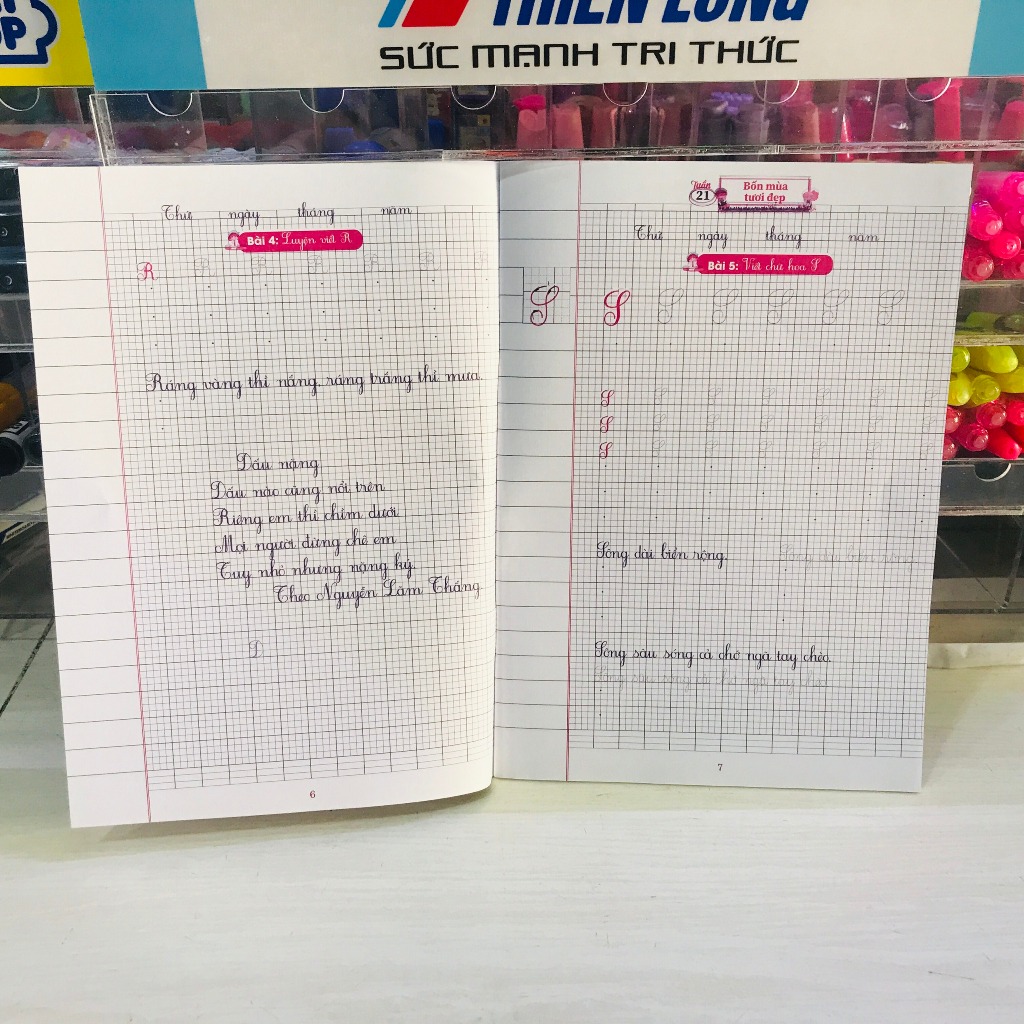 THIÊN LONG
SỨC MẠNH TRI THỨC
Thứ ngày tháng năm
Bài 4: Luyện viết R
R R R R R R R
Ráng vàng thì nắng, ráng trắng thì mưa.
Dấu nặng
Dấu nào cũng nổi trên
Riêng em thì chìm dưới
Mọi người đừng chê em
Tuy nhỏ nhưng nặng ký.
Theo Nguyễn Lãm Thắng
D
6
Tuần
21
Bốn mùa
tươi đẹp
Thứ ngày tháng năm
Bài 5: Viết chữ hoa S
S S S S S S S
S S S S S S S
S S S S S S S
S S S S S S S
Sông dài biển rộng. Sông dài biển rộng.
Sông sâu sóng cả chớ ngã tay chèo.
Sông sâu sóng cả chớ ngã tay chèo.
7